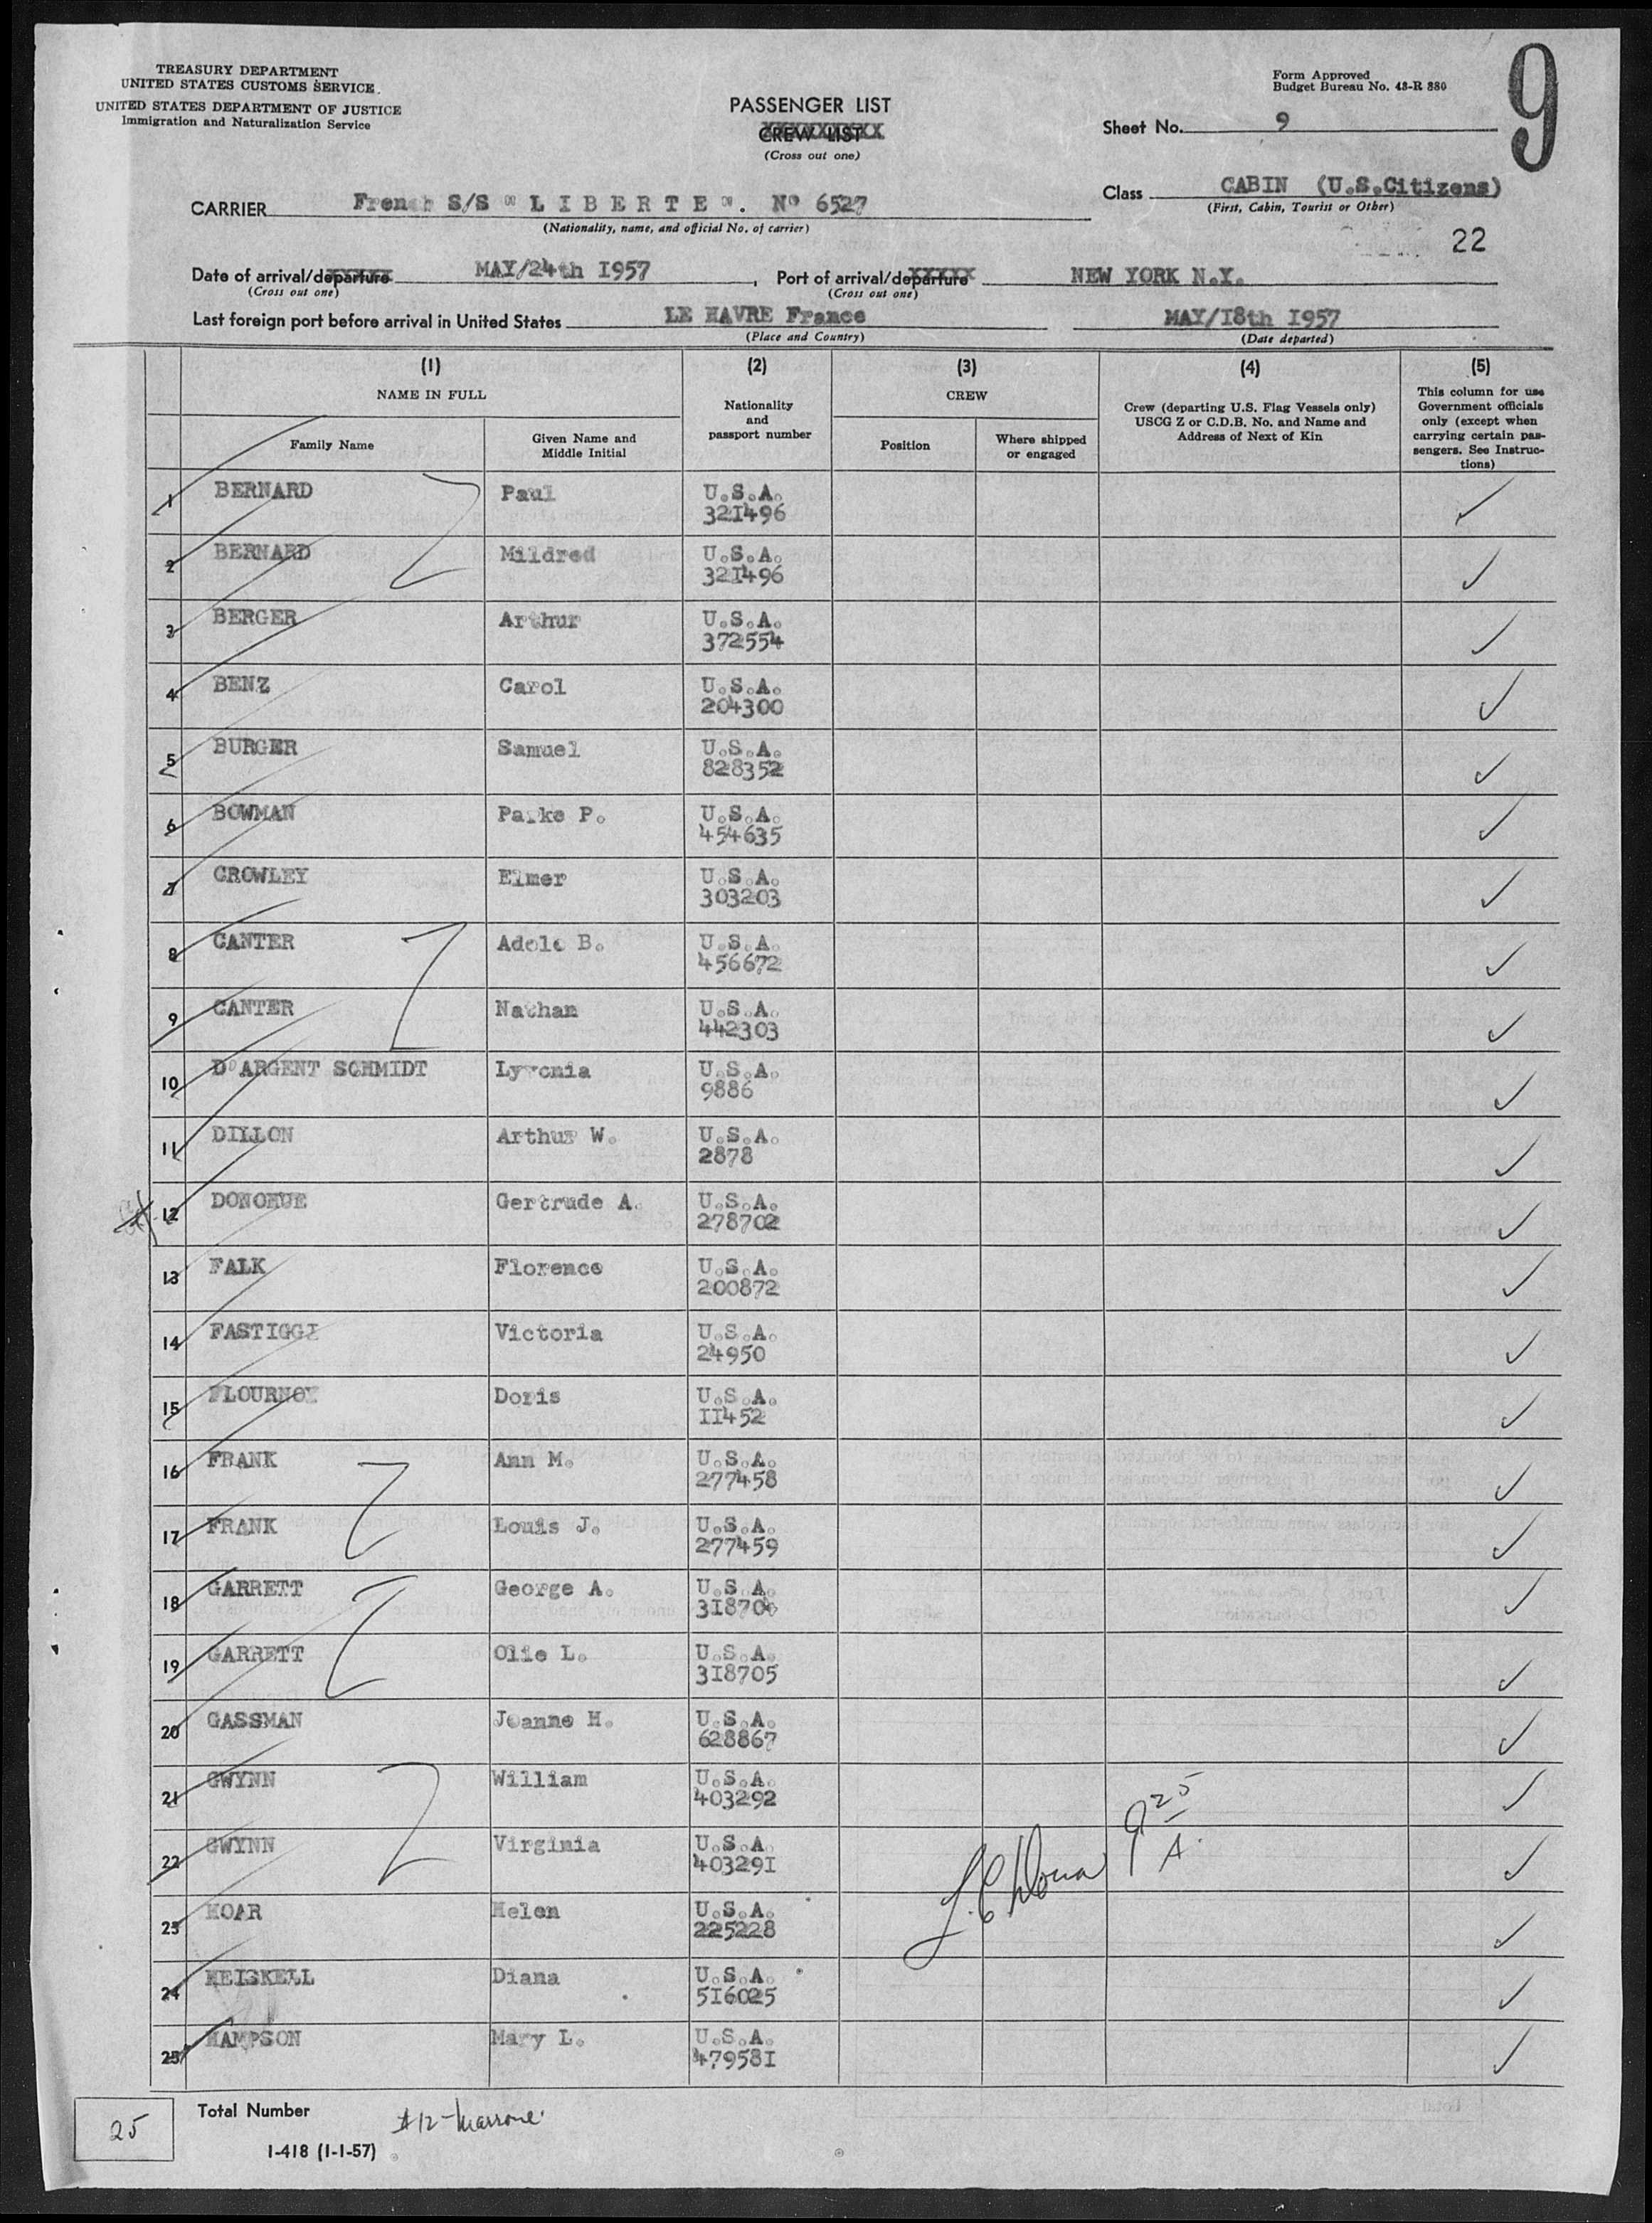 TREASURY DEPARTMENT
UNITED STATES CUSTOMS SERVICE
UNITED STATES DEPARTMENT OF JUSTICE
Immigration and Naturalization Service
PASSENGER LIST
CREW LIST
(Cross out one)
Form Approved
Budget Bureau No. 43-R 380
9
Sheet No. 9
Class CABIN (U.S.Citizens)
(First, Cabin, Tourist or Other)
CARRIER French S/S "LIBERTE". Nº 6527
(Nationality, name, and official No. of carrier)
22
Date of arrival/departure MAY/24th I957, Port of arrival/departure NEW YORK N.Y.
(Cross out one) (Cross out one)
Last foreign port before arrival in United States LE HAVRE France MAY/I8th I957
(Place and Country) (Date departed)
(1) (2) (3) (4) (5)
NAME IN FULL
Family Name
Given Name and
Middle Initial
Nationality
and
passport number
CREW
Position
Where shipped
or engaged
Crew (departing U.S. Flag Vessels only)
USCG Z or C.D.B. No. and Name and
Address of Next of Kin
This column for use
Government officials
only (except when
carrying certain pas-
sengers. See Instruc-
tions)
1 BERNARD Paul U.S.A.
32I496
2 BERNARD Mildred U.S.A.
32I496
3 BERGER Arthur U.S.A.
372554
4 BENZ Carol U.S.A.
204300
5 BURGER Samuel U.S.A.
828352
6 BOWMAN Parke P. U.S.A.
454635
7 CROWLEY Elmer U.S.A.
303203
8 CANTER Adele B. U.S.A.
456672
9 CANTER Nathan U.S.A.
442303
10 D'ARGENT SCHMIDT U.S.A.
9886
11 DILLON Arthur W. U.S.A.
2878
12 DONOHUE Gertrude A. U.S.A.
278702
13 FALK Florence U.S.A.
200872
14 FASTIGGI Victoria U.S.A.
24950
15 FLOURNOY Doris U.S.A.
II452
16 FRANK Ann M. U.S.A.
277458
17 FRANK Louis J. U.S.A.
277459
18 GARRETT George A. U.S.A.
19 GARRETT Olie L. U.S.A.
3I8705
20 GASSMAN Joanne H. U.S.A.
628867
21 GWYNN William U.S.A.
403292
22 GWYNN Virginia U.S.A.
40329I
23 HOAR Helen U.S.A.
225228
24 HEISKELL Diana U.S.A.
5I6025
25 HAMPSON Mary L. U.S.A.
47958I
9 25
A.
25
Total Number
#12-Marrone
I-418 (1-1-57)